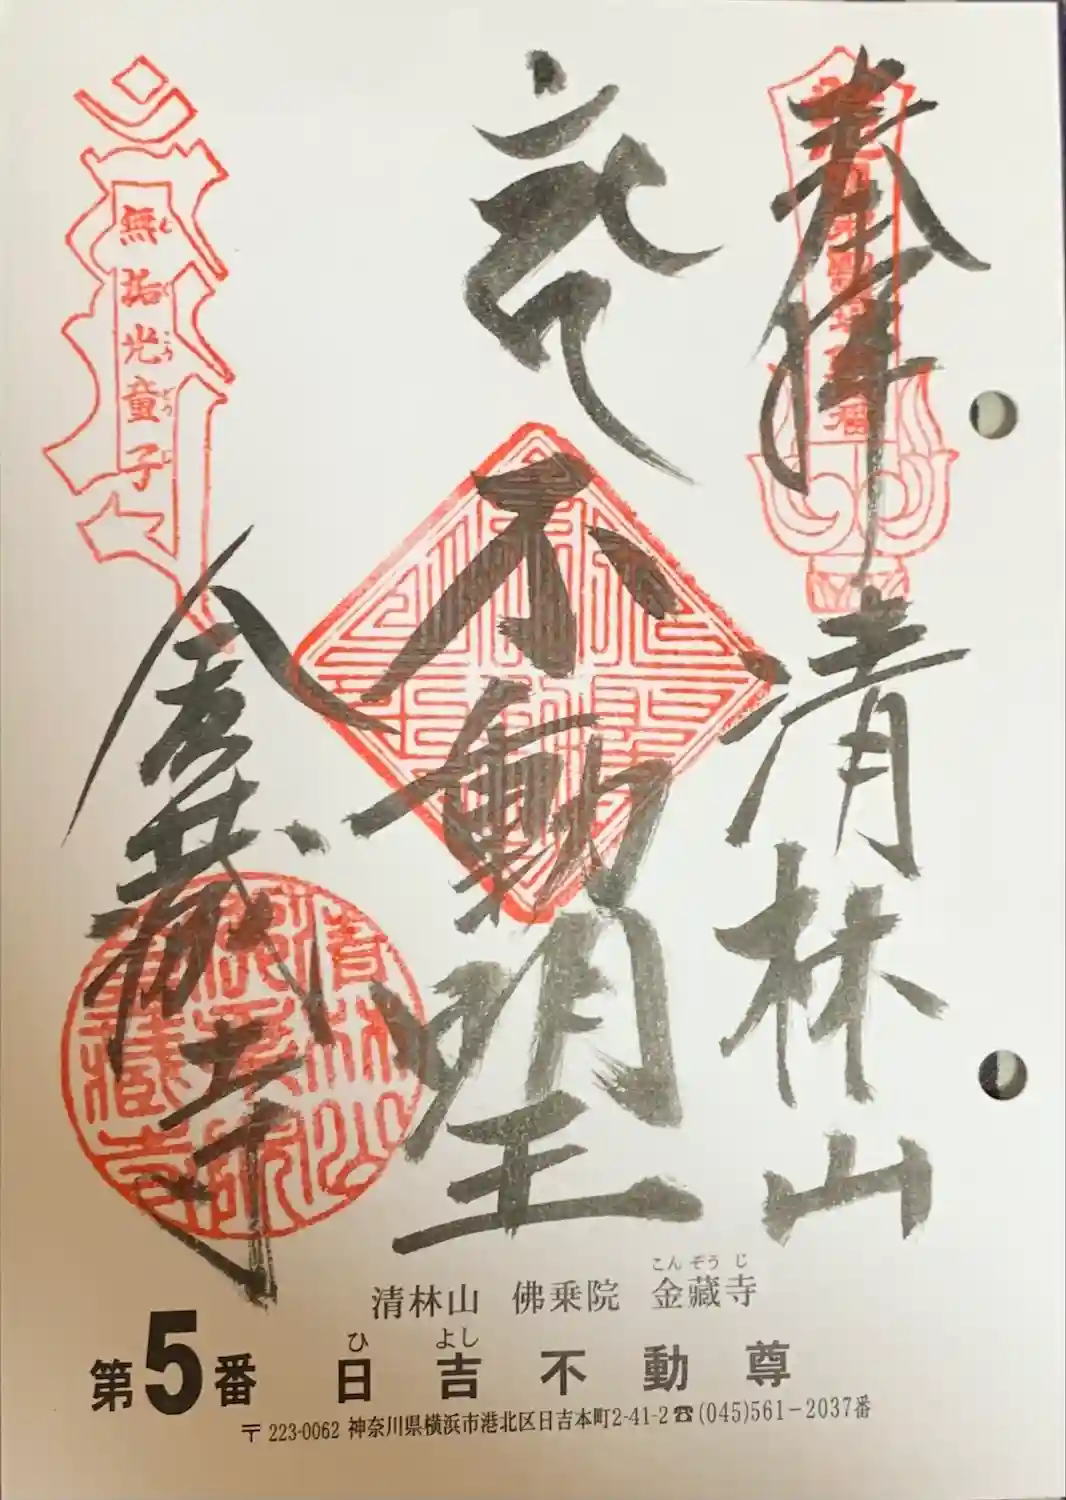 奉拝
清林山
不動明王
金蔵寺
無垢光童子
むくこうどうじ
清林山 佛乗院 金藏寺
こんぞうじ
第5番 日吉不動尊
ひよし
〒223-0062 神奈川県横浜市港北区日吉本町2-41-2☎(045)561-2037番